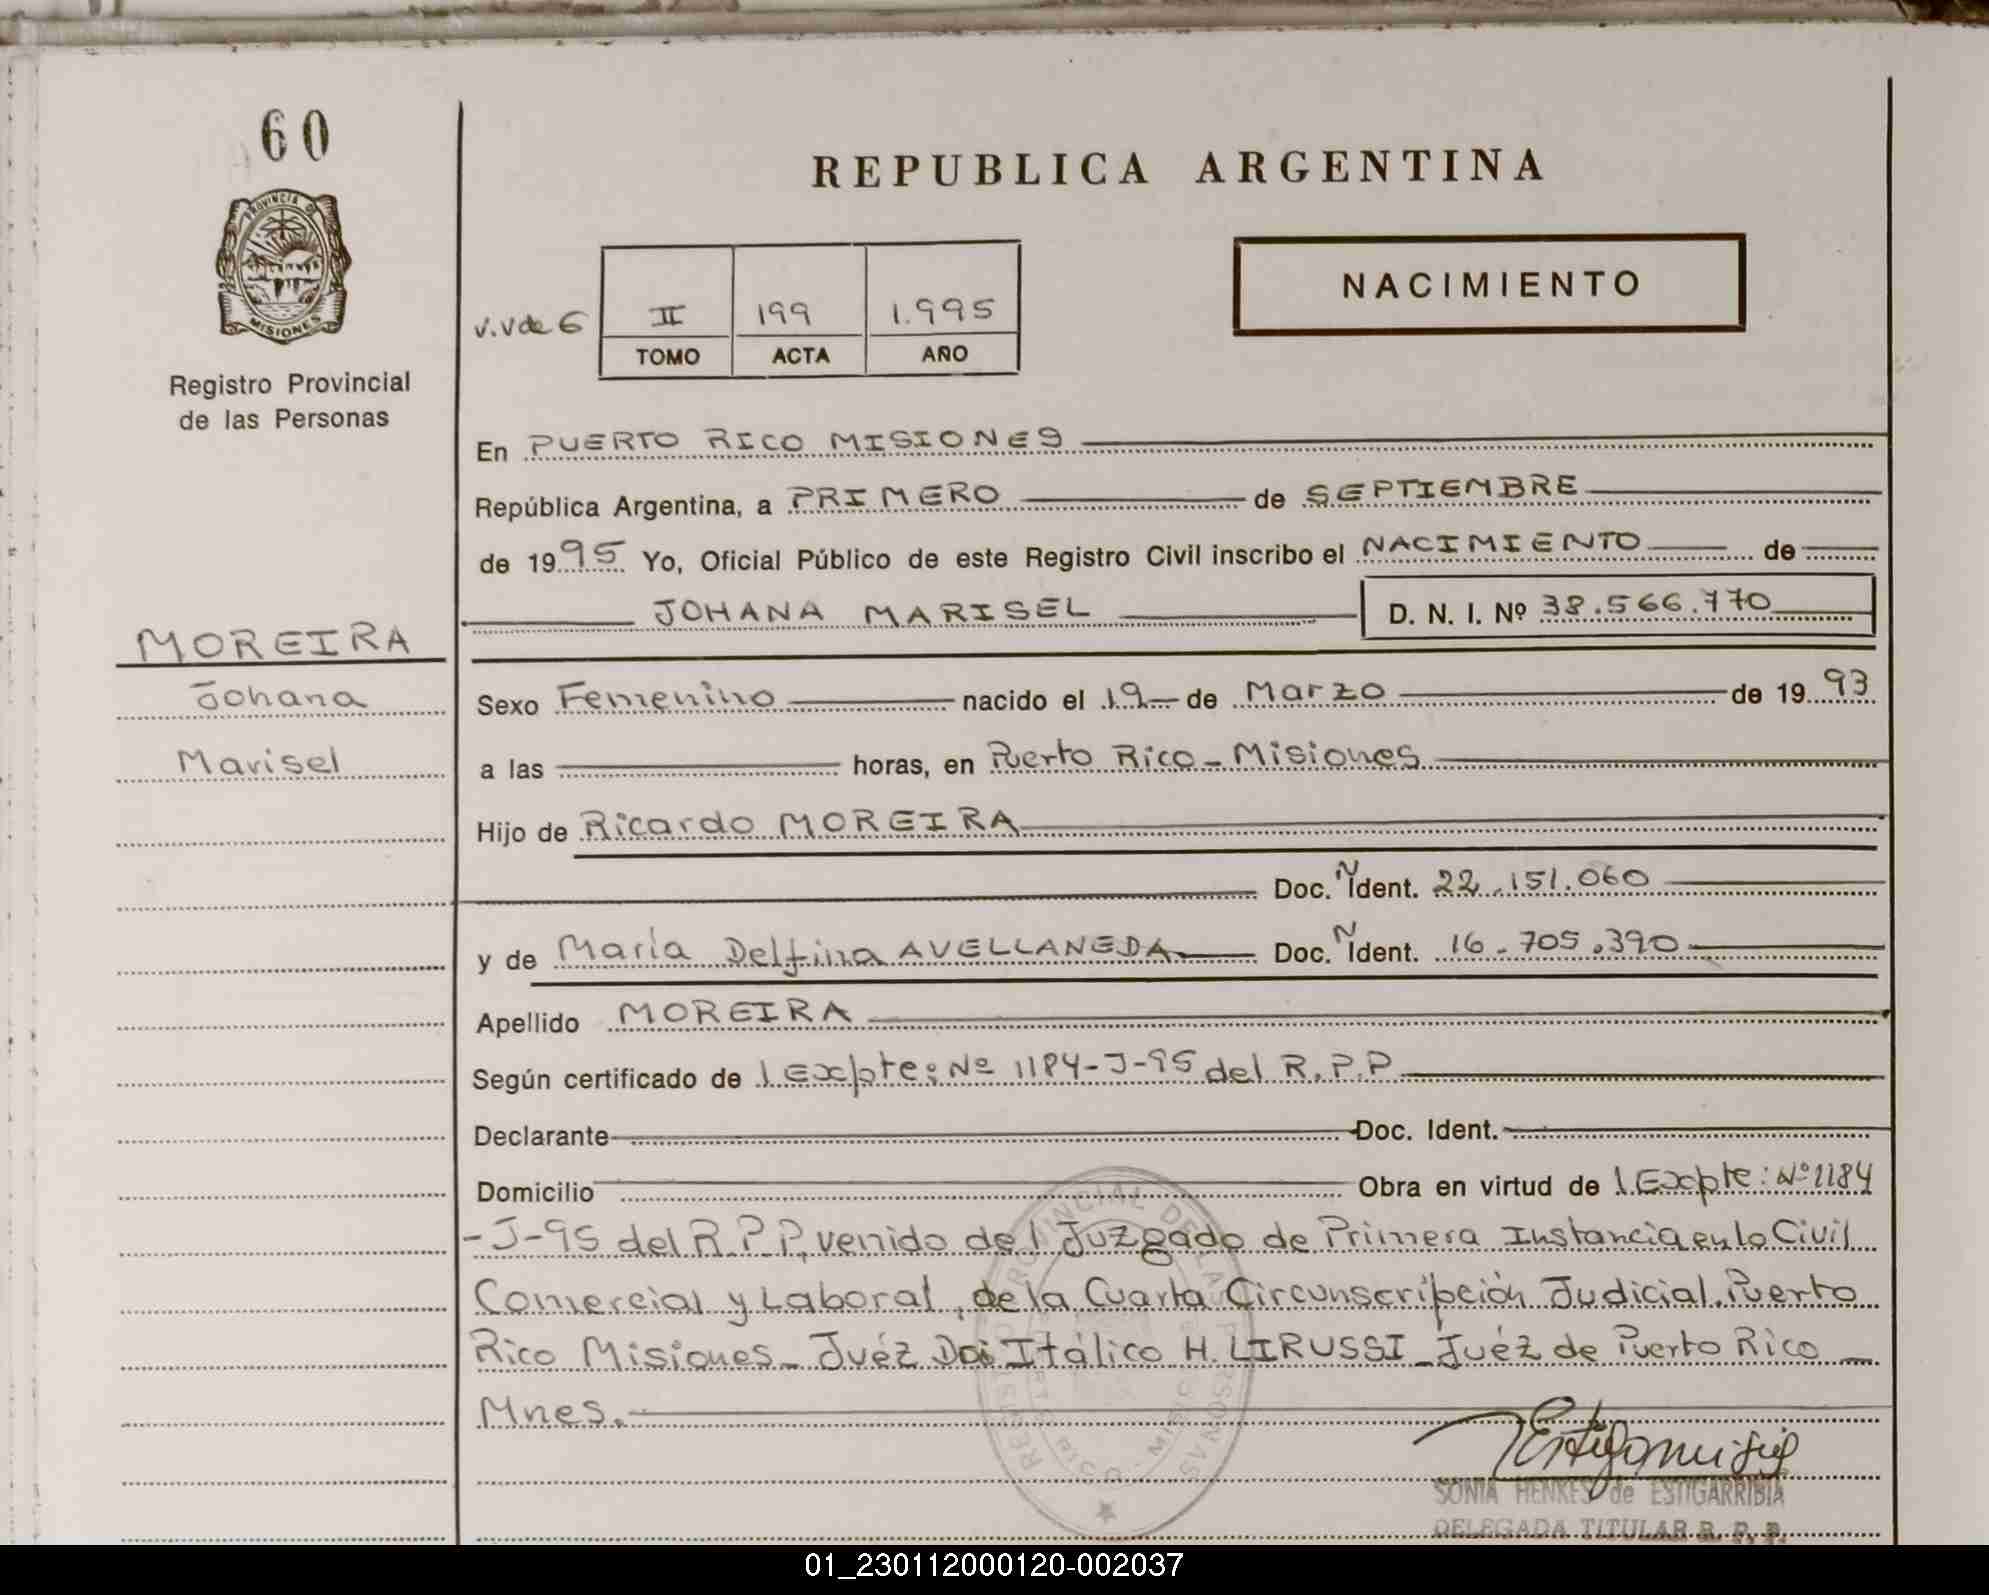 60
PROVINCIA DE
MISIONES
Registro Provincial
de las Personas
REPUBLICA ARGENTINA
NACIMIENTO
V.V de 6
II 199 1.995
TOMO ACTA AÑO
En PUERTO RICO MISIONES
República Argentina, a PRIMERO de SEPTIEMBRE
de 1995 Yo, Oficial Público de este Registro Civil inscribo el NACIMIENTO de
JOHANA MARISEL D. N. I. Nº 38.566.770
MOREIRA
Johana
Marisel
Sexo Femenino nacido el 19 de Marzo de 1993
a las horas, en Puerto Rico - Misiones
Hijo de Ricardo MOREIRA
Doc. N Ident. 22.151.060
y de María Delfina AVELLANEDA Doc. N Ident. 16.705.390
Apellido MOREIRA
Según certificado de l Expte: Nº 1184-J-95 del R.P.P
Declarante Doc. Ident.
Domicilio Obra en virtud de l Expte: Nº 1184
-J-95 del R.P.P, venido del Juzgado de Primera Instancia en lo Civil
Comercial y Laboral, de la Cuarta Circunscripción Judicial. Puerto
Rico Misiones - Juéz Itálico H. LIRUSSI - Juéz de Puerto Rico
Mnes.
SONIA HENKES de ESTIGARRIBIA
DELEGADA TITULAR R. P. P.
01_230112000120-002037